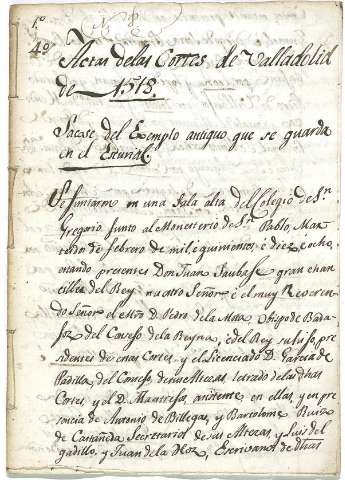 1º
4º
Actas de las Cortes de Valladolid
de 1518.
Sacose del Exemplo antiguo que se guarda
en el Escurial.
Se juntaron en una Sala alta del Colegio de Sn.
Gregorio junto al Monesterio de Sn. Pablo, Mar
de febrero de mil e quinientos, e diez e ocho,
estando presentes Don Juan Saubaje gran chan
ciller del Rey nuestro Señor é el muy Reveren
do Señor el Mtro D. Pedro de la Mota Obispo de Bada
joz del Consejo de la Reyna, é del Rey su hijo, pre
sidentes de estas Cortes, y el Licenciado D. Garcia de
Padilla del Consejo de sus Altezas, letrado de las dhas
Cortes, y el D. asistente en ellas, y en pre
sencia de Antonio de Billegas, y Bartolome Ruiz
de Castañeda Secretarios de sus Altezas, y Luis del
gadillo, y Juan de la Hoz, Escrivanos de dhas